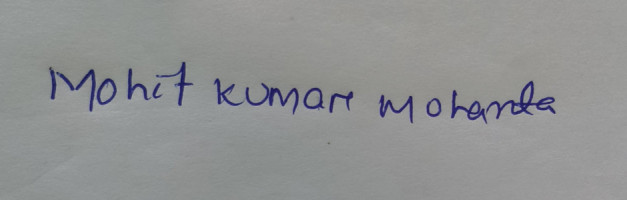 Mohit Kumar Mohanda